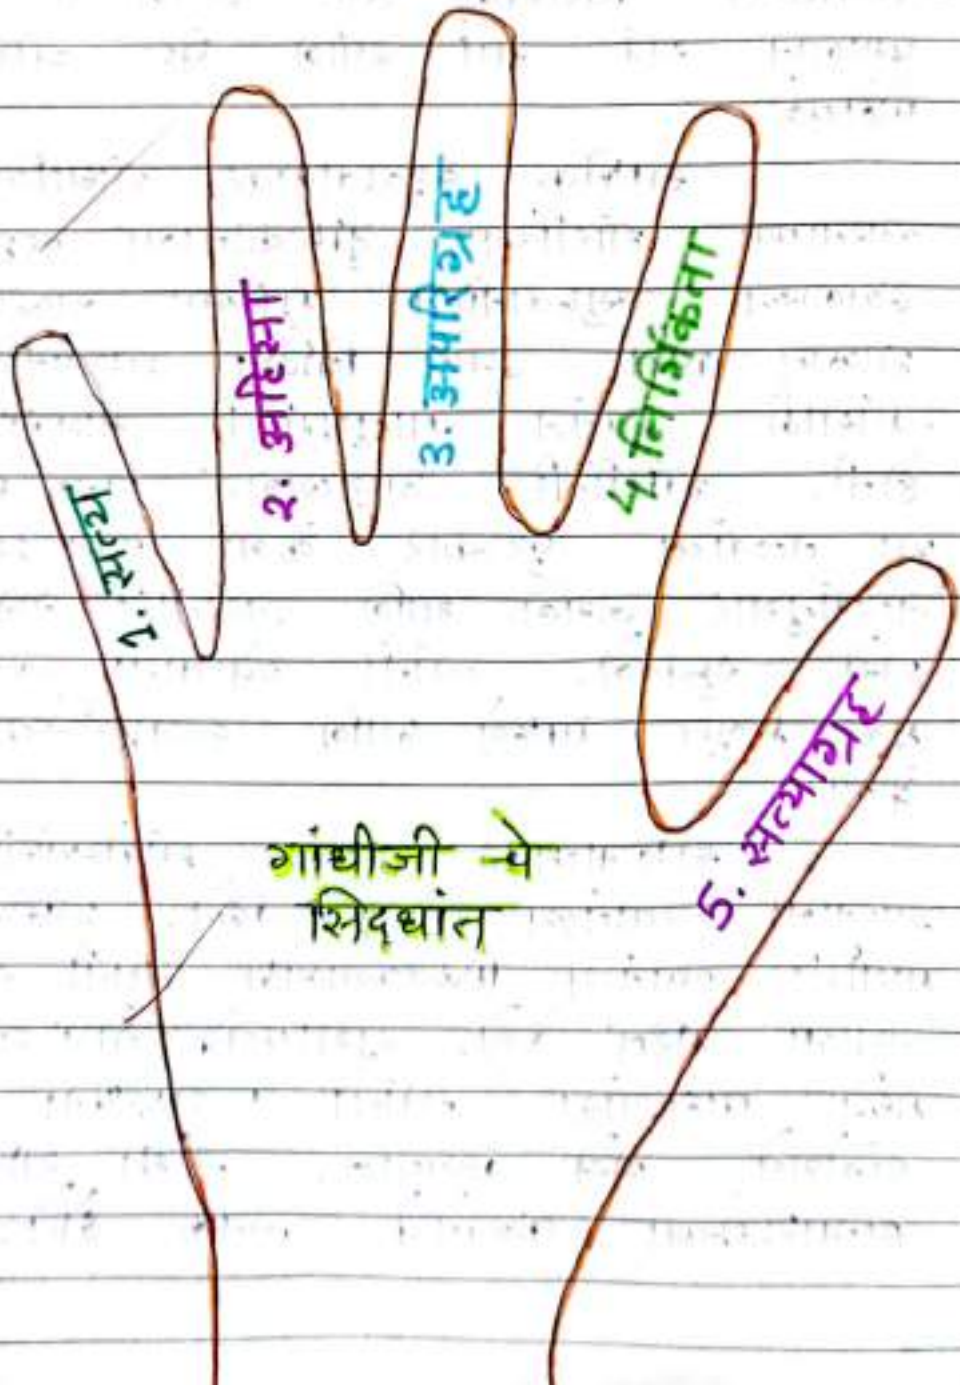 1. सत्य
२. अहिंसा
3. अपरिग्रह
4. निर्भिकता
5. सत्याग्रह
गांधीजी चे
सिद्धांत